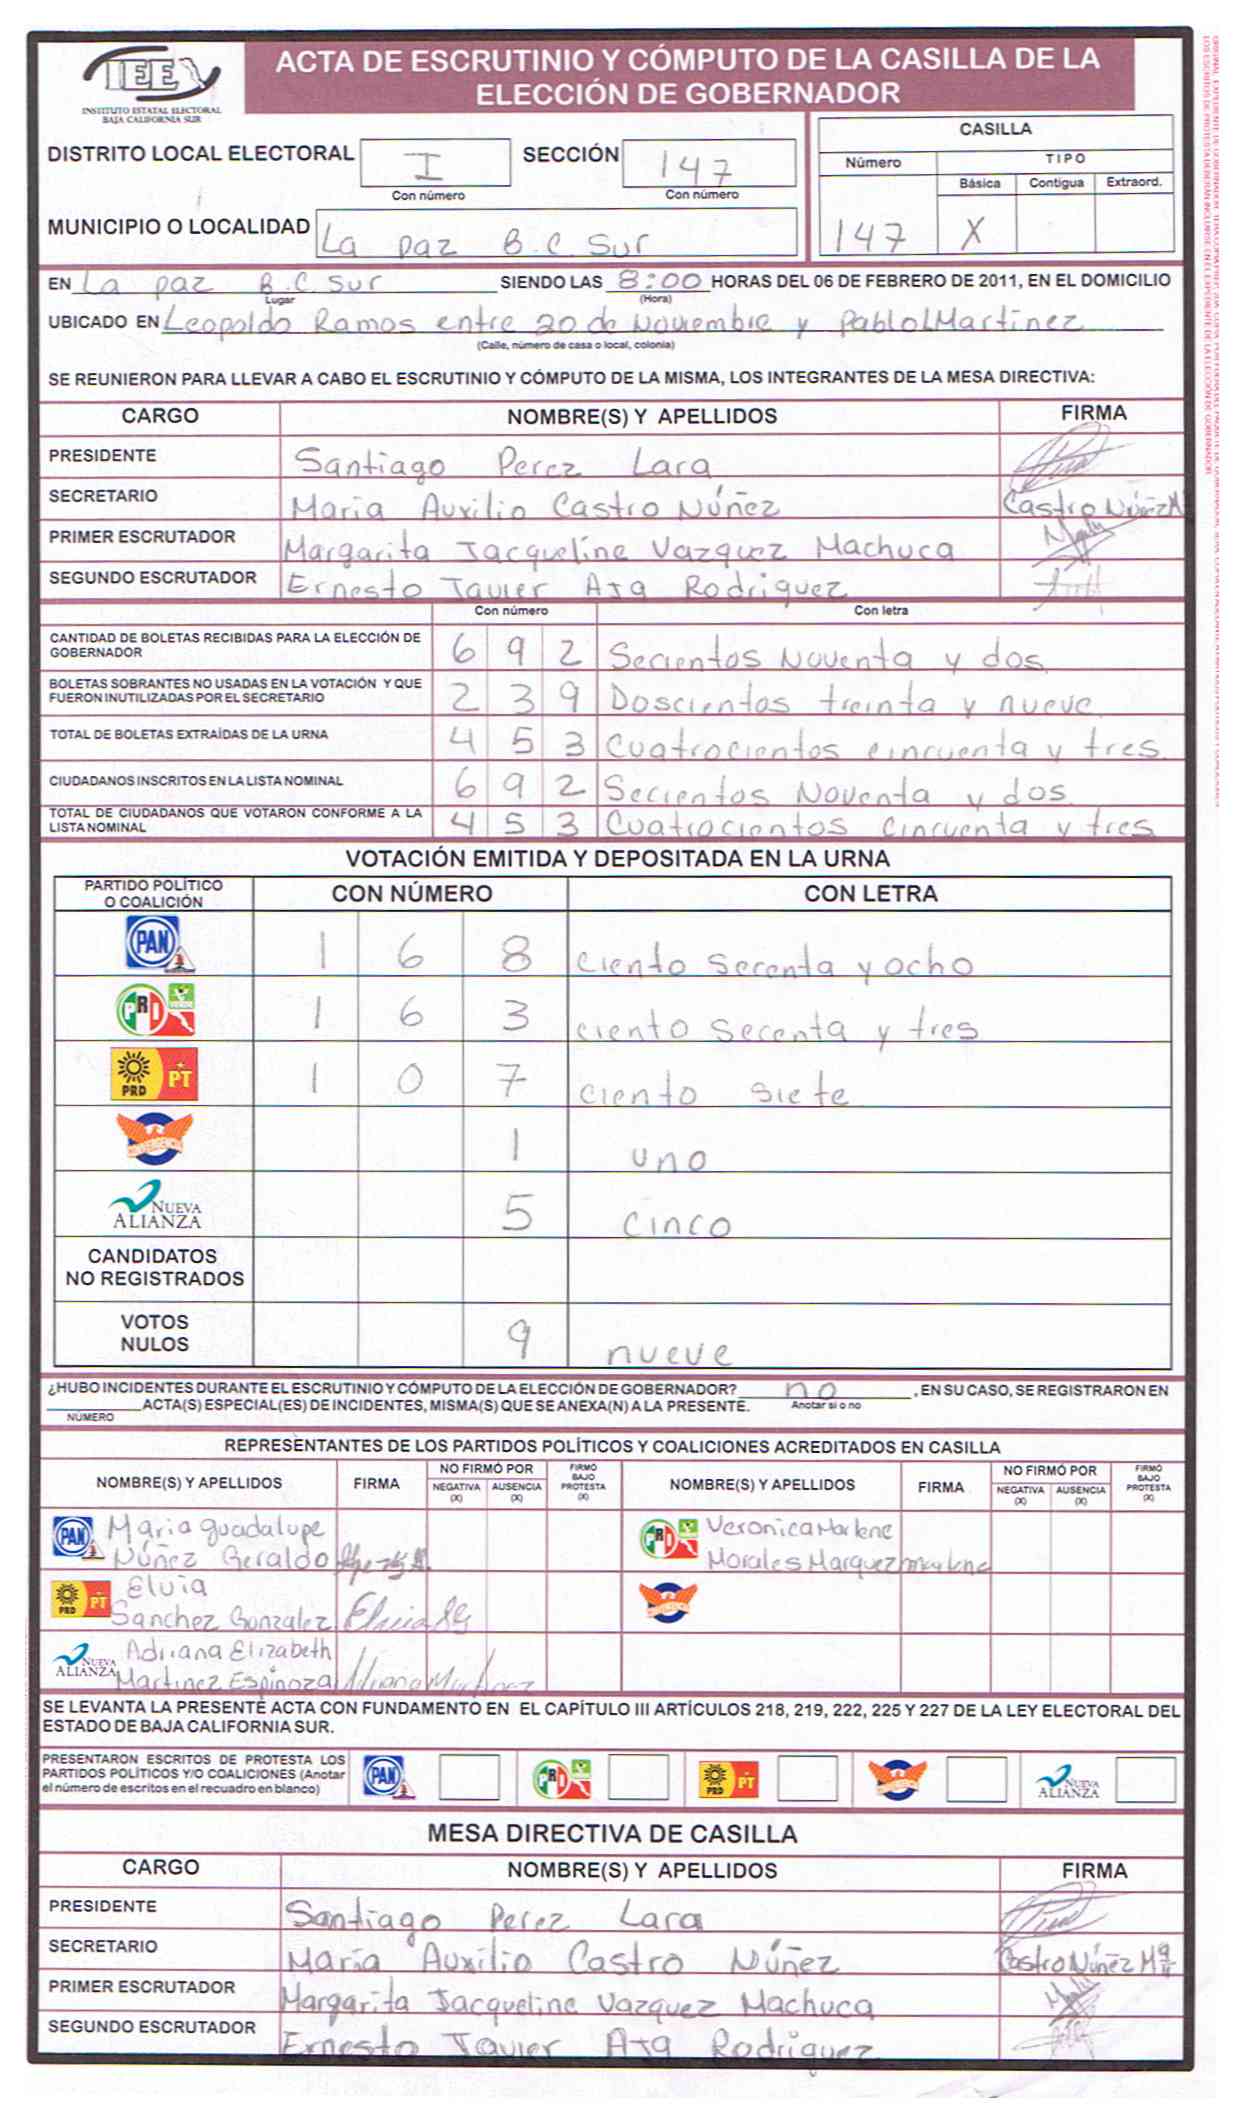 IEE
INSTITUTO ESTATAL ELECTORAL
BAJA CALIFORNIA SUR
ACTA DE ESCRUTINIO Y CÓMPUTO DE LA CASILLA DE LA
ELECCIÓN DE GOBERNADOR
DISTRITO LOCAL ELECTORAL I SECCIÓN 147
Con número Con número
MUNICIPIO O LOCALIDAD La paz B.C Sur
CASILLA
Número TIPO
Básica Contigua Extraord.
147 X
EN La paz B.C Sur SIENDO LAS 8:00 HORAS DEL 06 DE FEBRERO DE 2011, EN EL DOMICILIO
Lugar (Hora)
UBICADO EN Leopoldo Ramos entre 20 de Noviembre y Pablo L Martinez
(Calle, número de casa o local, colonia)
SE REUNIERON PARA LLEVAR A CABO EL ESCRUTINIO Y CÓMPUTO DE LA MISMA, LOS INTEGRANTES DE LA MESA DIRECTIVA:
CARGO NOMBRE(S) Y APELLIDOS FIRMA
PRESIDENTE Santiago Perez Lara
SECRETARIO Maria Auxilio Castro Núñez Castro Núñez M
PRIMER ESCRUTADOR Margarita Jacqueline Vazquez Machuca
SEGUNDO ESCRUTADOR Ernesto Javier Rodriguez
Con número Con letra
CANTIDAD DE BOLETAS RECIBIDAS PARA LA ELECCIÓN DE
GOBERNADOR 6 9 2 Secientos Noventa y dos
BOLETAS SOBRANTES NO USADAS EN LA VOTACIÓN Y QUE
FUERON INUTILIZADAS POR EL SECRETARIO 2 3 9 Doscientos treinta y nueve
TOTAL DE BOLETAS EXTRAÍDAS DE LA URNA 4 5 3 Cuatrocientos cincuenta y tres
CIUDADANOS INSCRITOS EN LA LISTA NOMINAL 6 9 2 Secientos Noventa y dos
TOTAL DE CIUDADANOS QUE VOTARON CONFORME A LA
LISTA NOMINAL 4 5 3 Cuatrocientos cincuenta y tres
VOTACIÓN EMITIDA Y DEPOSITADA EN LA URNA
PARTIDO POLÍTICO
O COALICIÓN CON NÚMERO CON LETRA
PAN 1 6 8 ciento Secenta y ocho
PRD VERDE 1 6 3 ciento Secenta y tres
PRD PT 1 0 7 ciento siete
1 uno
NUEVA ALIANZA 5 cinco
CANDIDATOS
NO REGISTRADOS
VOTOS
NULOS 9 nueve
¿HUBO INCIDENTES DURANTE EL ESCRUTINIO Y CÓMPUTO DE LA ELECCIÓN DE GOBERNADOR? no , EN SU CASO, SE REGISTRARON EN
ACTA(S) ESPECIAL(ES) DE INCIDENTES, MISMA(S) QUE SE ANEXA(N) A LA PRESENTE. Anotar si o no
NÚMERO
REPRESENTANTES DE LOS PARTIDOS POLÍTICOS Y COALICIONES ACREDITADOS EN CASILLA
NOMBRE(S) Y APELLIDOS FIRMA NO FIRMÓ POR NEGATIVA (X) AUSENCIA (X) FIRMÓ BAJO PROTESTA (X) NOMBRE(S) Y APELLIDOS FIRMA NO FIRMÓ POR NEGATIVA (X) AUSENCIA (X) FIRMÓ BAJO PROTESTA (X)
PAN María guadalupe
Núñez Geraldo
PRD Veronica Marlene
Morales Marquez
PRD PT Elvia
Sanchez Gonzalez
NUEVA ALIANZA Adriana Elizabeth
Martinez Espinoza
SE LEVANTA LA PRESENTE ACTA CON FUNDAMENTO EN EL CAPÍTULO III ARTÍCULOS 218, 219, 222, 225 Y 227 DE LA LEY ELECTORAL DEL
ESTADO DE BAJA CALIFORNIA SUR.
PRESENTARON ESCRITOS DE PROTESTA LOS
PARTIDOS POLÍTICOS Y/O COALICIONES (Anotar
el número de escritos en el recuadro en blanco)
PAN PRD PRD PT NUEVA ALIANZA
MESA DIRECTIVA DE CASILLA
CARGO NOMBRE(S) Y APELLIDOS FIRMA
PRESIDENTE Santiago Perez Lara
SECRETARIO María Auxilio Castro Núñez Castro Núñez Mª
PRIMER ESCRUTADOR Margarita Jacqueline Vazquez Machuca
SEGUNDO ESCRUTADOR Ernesto Javier Rodriguez